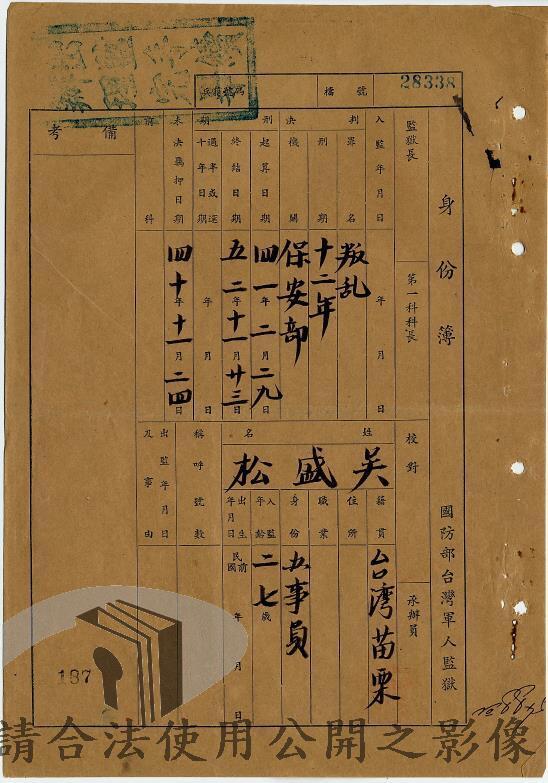 28338
檔號
身份簿
國防部台灣軍人監獄
監獄長
第一科科長
校對
承辦員
入監年月日
年月日
判決
罪名
叛乱
刑期
十二年
機關
保安部
刑期
起算日期
四一年二月二九日
終結日期
五二年十一月廿三日
年月日
未決羈押日期
四十年十一月二四日
前科
備考
姓名
吳盛松
籍貫
台灣苗栗
住所
職業
身份
事員
入監年齡
二七歲
出生年月日
民國前年月日
稱呼號數
出監年月日及事由
187
請合法使用公開之影像